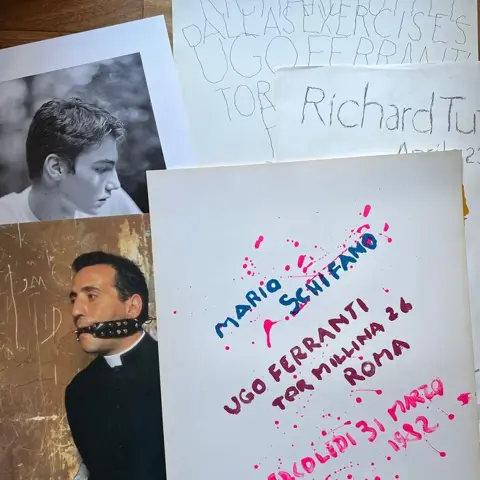 EXERCISES
UGO FERRANTI
TOR
Richard Tu
April
MARIO
SCHIFANO
UGO FERRANTI
TOR MILLINA 26
ROMA
RCOLEDI 31 MARZO
1982